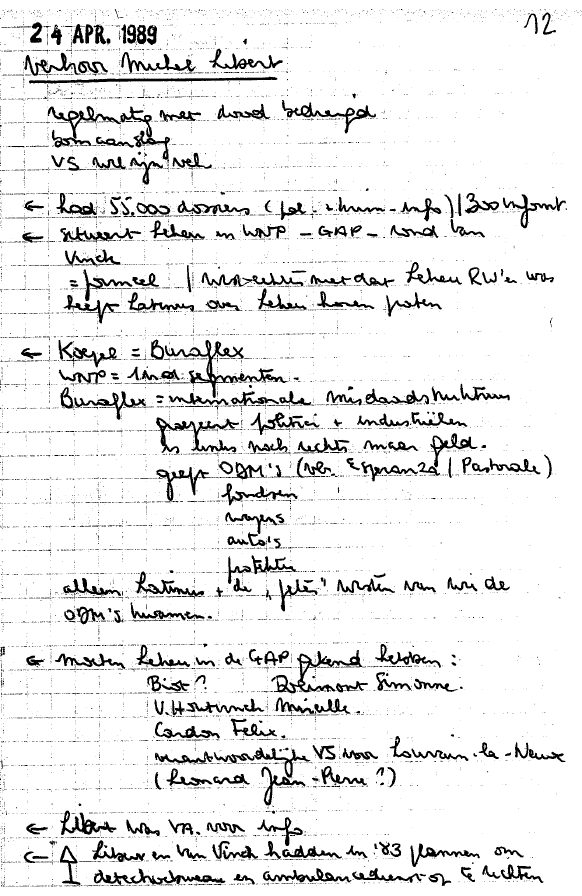 12
24 APR. 1989
Verhoor Michel Libert
regelmatig met dood bedreigd
bomaanslag
VS wil zijn vel
← had 55.000 dossiers (pol. + krim - info) / 300 informt.
← situeert Lekeu in WNP - GAP - rond Van
Vinck
= formeel / wist echter niet dat Lekeu RW'er was
heeft Latinus over Lekeu horen praten
← Koepel = Buraflex
WNP = 1 v.d. segmenten.
Buraflex = internationale misdaadstruktuur
groepeert politici + industriëlen
is links noch rechts maar geld.
geeft ODM's (vb. Esperanza / Pastorale)
fondsen
wapens
auto's
protektie
alleen Latinus + de "jeter" wisten van wie de
ODM's kwamen.
← moeten Lekeu in de GAP gekend hebben:
Bist? Breimont Simonne.
V. Houtvinck Mireille.
Cardon Felix.
verantwoordelijke VS voor Louvain-la-Neuve
(Leonard Jean-Pierre?)
← Libert was VA. voor info
← Libert en Van Vinck hadden in '83 plannen om
detectivebureau en ambulancedienst op te richten